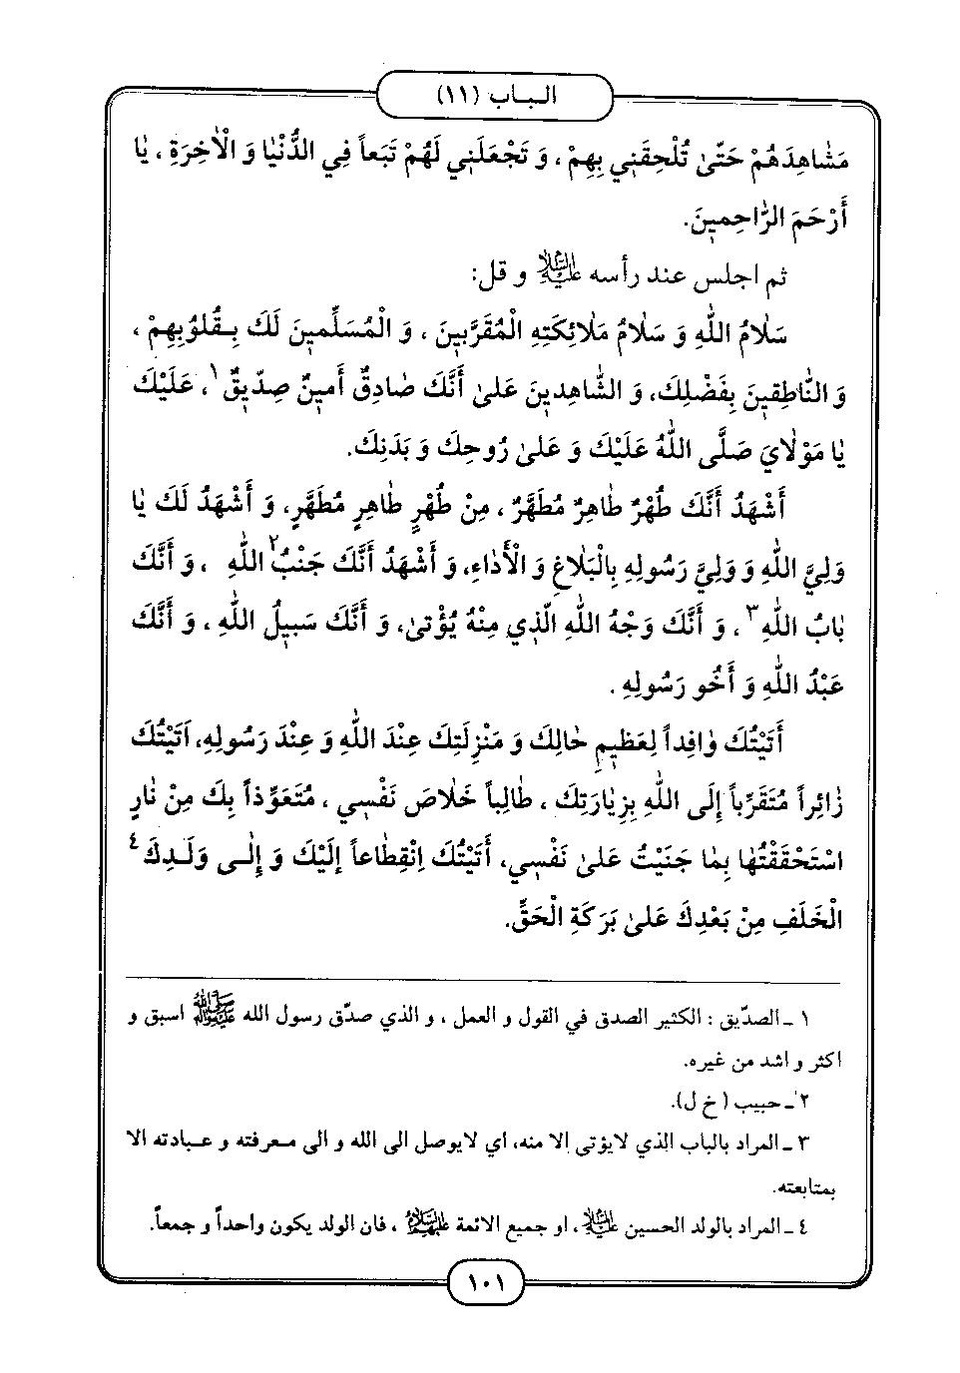 الباب (١١)
مَشٰاهِدَهُمْ حَتّىٰ تُلْحِقَنِي بِهِمْ ، وَ تَجْعَلَنِي لَهُمْ تَبَعاً فِي الدُّنْيٰا وَ الْاٰخِرَةِ ، يٰا
أَرْحَمَ الرّٰاحِمِينَ.
ثم اجلس عند رأسه عليه السلام و قل:
سَلٰامُ اللّٰهِ وَ سَلٰامُ مَلٰائِكَتِهِ الْمُقَرَّبِينَ ، وَ الْمُسَلِّمِينَ لَكَ بِقُلُوبِهِمْ ،
وَ النّٰاطِقِينَ بِفَضْلِكَ، وَ الشّٰاهِدِينَ عَلىٰ أَنَّكَ صٰادِقٌ أَمِينٌ صِدِّيقٌ ١، عَلَيْكَ
يٰا مَوْلٰايَ صَلَّى اللّٰهُ عَلَيْكَ وَ عَلىٰ رُوحِكَ وَ بَدَنِكَ.
أَشْهَدُ أَنَّكَ طُهْرٌ طٰاهِرٌ مُطَهَّرٌ ، مِنْ طُهْرٍ طٰاهِرٍ مُطَهَّرٍ، وَ أَشْهَدُ لَكَ يٰا
وَلِيَّ اللّٰهِ وَ وَلِيَّ رَسُولِهِ بِالْبَلٰاغِ وَ الْأَدٰاءِ، وَ أَشْهَدُ أَنَّكَ جَنْبُ ٢ اللّٰهِ ، وَ أَنَّكَ
بٰابُ اللّٰهِ ٣ ، وَ أَنَّكَ وَجْهُ اللّٰهِ الَّذِي مِنْهُ يُؤْتىٰ، وَ أَنَّكَ سَبِيلُ اللّٰهِ ، وَ أَنَّكَ
عَبْدُ اللّٰهِ وَ أَخُو رَسُولِهِ .
أَتَيْتُكَ وٰافِداً لِعَظِيمِ حٰالِكَ وَ مَنْزِلَتِكَ عِنْدَ اللّٰهِ وَ عِنْدَ رَسُولِهِ، اَتَيْتُكَ
زٰائِراً مُتَقَرِّباً إِلَى اللّٰهِ بِزِيٰارَتِكَ ، طٰالِباً خَلٰاصَ نَفْسِي ، مُتَعَوِّذاً بِكَ مِنْ نٰارٍ
اسْتَحْقَقْتُهٰا بِمٰا جَنَيْتُ عَلىٰ نَفْسِي، أَتَيْتُكَ انْقِطٰاعاً إِلَيْكَ وَ إِلٰى وَلَدِكَ ٤
الْخَلَفِ مِنْ بَعْدِكَ عَلىٰ بَرَكَةِ الْحَقِّ.
١ ـ الصدّيق : الكثير الصدق في القول و العمل ، و الذي صدّق رسول الله صلى الله عليه وآله اسبق و
اكثر و اشد من غيره.
٢ ـ حبيب ( خ ل).
٣ ـ المراد بالباب الذي لايؤتى الا منه، اي لايوصل الى الله و الى معرفته و عبادته الا
بمتابعته.
٤ ـ المراد بالولد الحسين عليه السلام ، او جميع الائمة عليهم السلام ، فان الولد يكون واحداً و جمعاً.
١٠١